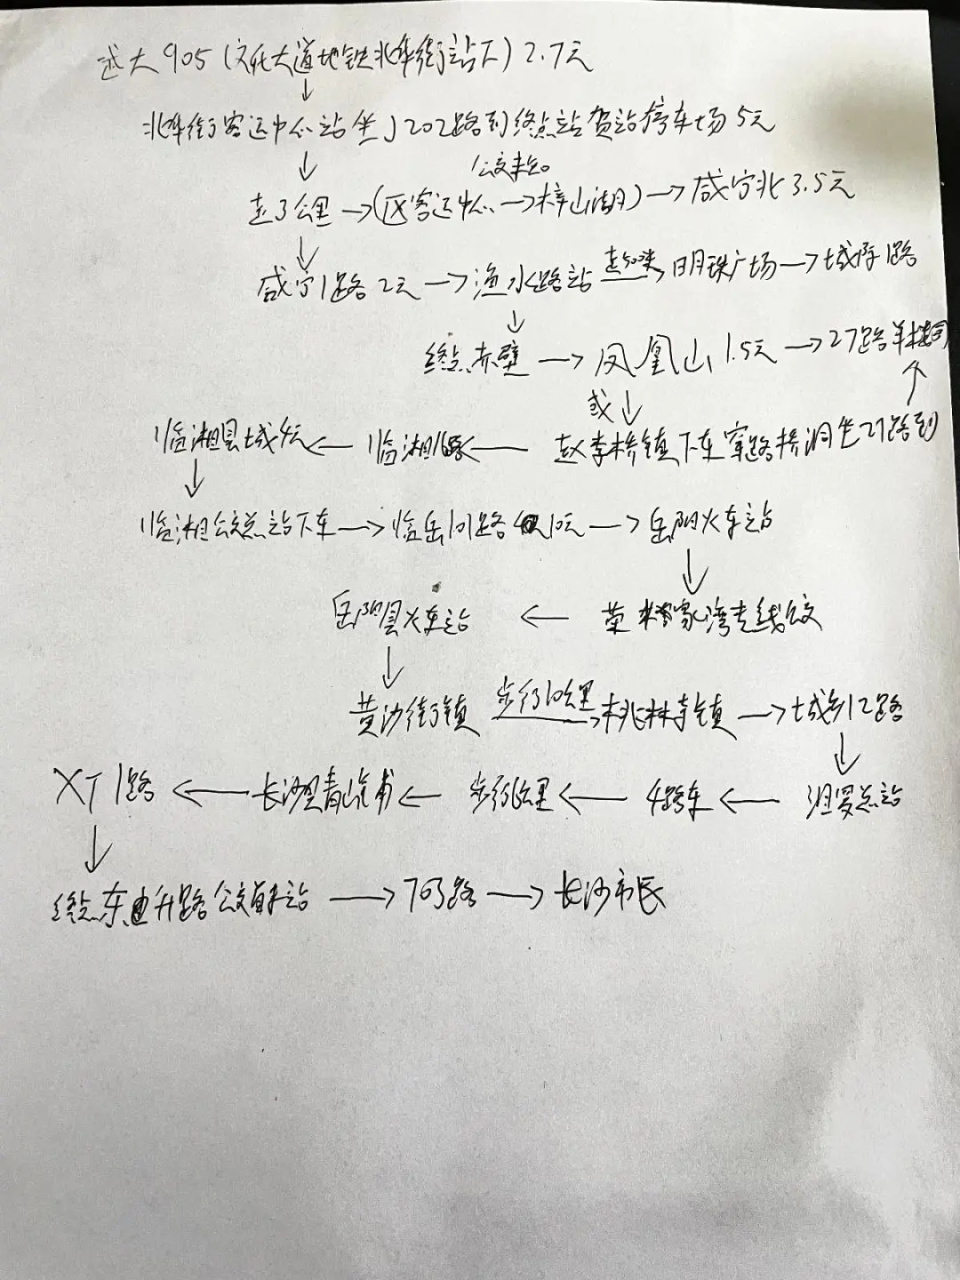 远大905(文化大道地铁北华街站下)2.7元
↓
北华街客运中心站坐J202路到终点站贺站停车场5元
↓ 公交未知
走3公里→(区客运中心→梓山湖)→咸宁北3.5元
↓
咸宁1路2元→渔水路站 走 明珠广场→城际1路
↓
终点赤壁→凤凰山1.5元→27路羊楼司
或↓ ↑
临湘县城4元←临湘16路←赵李桥镇下车穿路桥洞坐27路到
↓
临湘公交总站下车→临岳101路10元→岳阳火车站
↓
岳阳县火车站←荣家湾专线公交
↓
黄沙街镇 步行10公里→桃林寺镇→城乡12路
↓
XT1路←长沙县青山铺←步行6公里←4路车←汨罗总站
↓
终点东升路公交首末站→703路→长沙市民